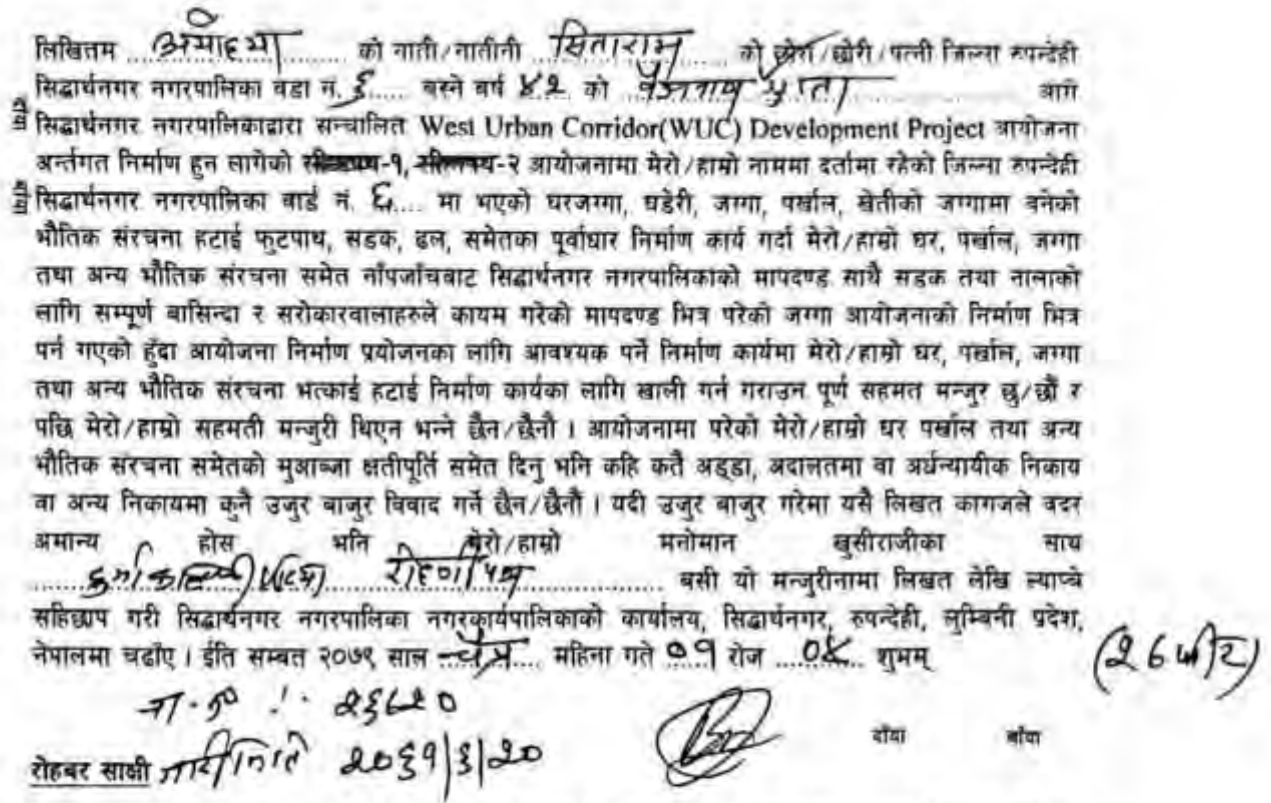 लिखितम अयोध्या को नाती/नातीनी सिताराम को छोरा/छोरी/पत्नी जिल्ला रुपन्देही
सिद्धार्थनगर नगरपालिका वडा नं. ६ बस्ने वर्ष ४२ को बैजनाथ गुप्ता आगे
सिद्धार्थनगर नगरपालिकाद्वारा सन्चालित West Urban Corridor(WUC) Development Project आयोजना
अर्न्तगत निर्माण हुन लागेको -१, -२ आयोजनामा मेरो/हाम्रो नाममा दर्तामा रहेको जिल्ला रुपन्देही
सिद्धार्थनगर नगरपालिका वार्ड नं. ६ मा भएको घरजग्गा, घडेरी, जग्गा, पर्खाल, खेतीको जग्गामा बनेको
भौतिक संरचना हटाई फुटपाथ, सडक, ढल, समेतका पूर्वाधार निर्माण कार्य गर्दा मेरो/हाम्रो घर, पर्खाल, जग्गा
तथा अन्य भौतिक संरचना समेत नाँपजाँचबाट सिद्धार्थनगर नगरपालिकाको मापदण्ड साथै सडक तथा नालाको
लागि सम्पूर्ण बासिन्दा र सरोकारवालाहरुले कायम गरेको मापदण्ड भित्र परेको जग्गा आयोजनाको निर्माण भित्र
पर्न गएको हुँदा आयोजना निर्माण प्रयोजनका लागि आवश्यक पर्ने निर्माण कार्यमा मेरो/हाम्रो घर, पर्खाल, जग्गा
तथा अन्य भौतिक संरचना भत्काई हटाई निर्माण कार्यका लागि खाली गर्न गराउन पूर्ण सहमत मन्जुर छु/छौं र
पछि मेरो/हाम्रो सहमती मन्जुरी थिएन भन्ने छैन/छैनौ । आयोजनामा परेको मेरो/हाम्रो घर पर्खाल तथा अन्य
भौतिक संरचना समेतको मुआब्जा क्षतीपूर्ति समेत दिनु भनि कहि कतै अड्डा, अदालतमा वा अर्धन्यायीक निकाय
वा अन्य निकायमा कुनै उजुर बाजुर विवाद गर्ने छैन/छैनौं । यदी उजुर बाजुर गरेमा यसै लिखत कागजले बदर
अमान्य होस भनि मेरो/हाम्रो मनोमान खुसीराजीका साथ
रोहिणी पथ बसी यो मन्जुरीनामा लिखत लेखि ल्याप्चे
सहिछाप गरी सिद्धार्थनगर नगरपालिका नगरकार्यपालिकाको कार्यालय, सिद्धार्थनगर, रुपन्देही, लुम्बिनी प्रदेश,
नेपालमा चढाँए । ईति सम्बत २०७९ साल चैत्र महिना गते ०१ रोज ०४ शुभम्
(26 फीट)
ना.प्र. : २६८२०
दाँया बाँया
रोहबर साक्षी जारी मिति २०६१|६|२०